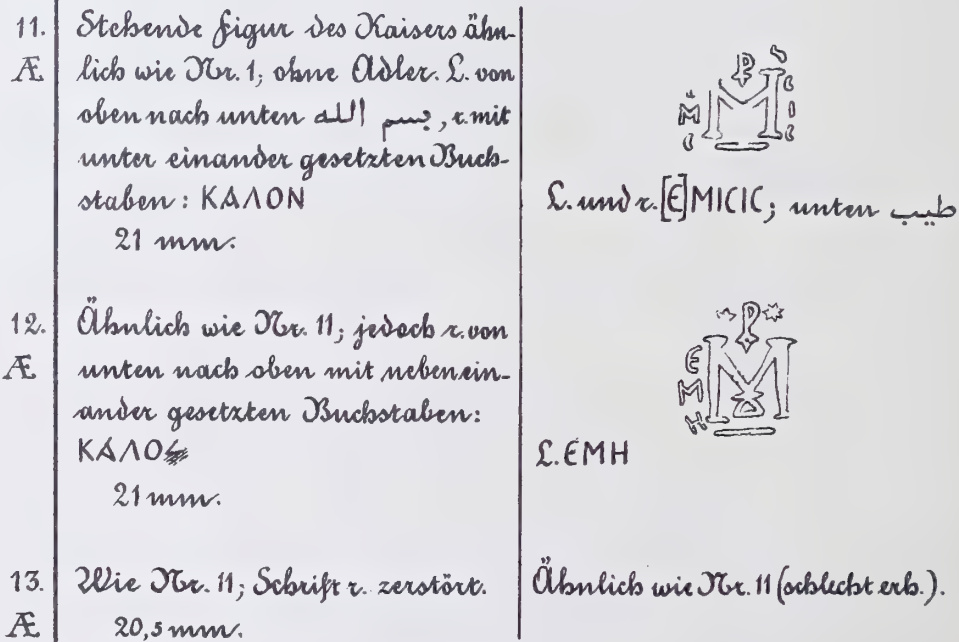 11. Stehende Figur des Kaisers ähn-
Æ lich wie Nr. 1; ohne Adler. L. von
oben nach unten بسم الله, r. mit
unter einander gesetzten Buch-
staben: ΚΑΛΟΝ
21 mm.
L. und r. [Є]MICIC; unten طيب
12. Ähnlich wie Nr. 11; jedoch r. von
Æ unten nach oben mit nebenein-
ander gesetzten Buchstaben:
ΚΑΛΟ
21 mm.
L. ЄMH
13. Wie Nr. 11; Schrift r. zerstört.
Æ 20,5 mm.
Ähnlich wie Nr. 11 (schlecht erh.).